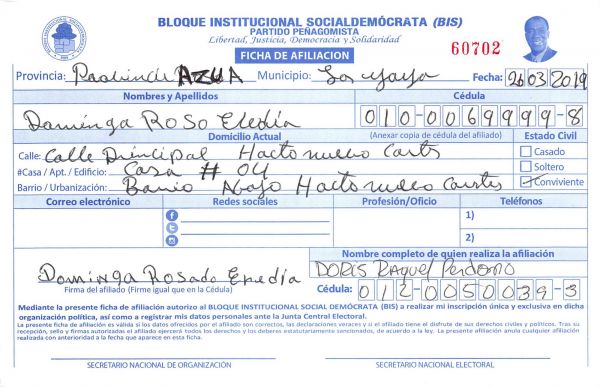 BLOQUE INSTITUCIONAL SOCIALDEMÓCRATA (BIS)
PARTIDO PEÑAGOMISTA
Libertad, Justicia, Democracia y Solidaridad
FICHA DE AFILIACION
60702
Provincia: Provincia AZUA Municipio: Los yayas Fecha: 26 03 2019
Nombres y Apellidos Cédula
Daminga ROSO Eredia 010-0069999-8
Domicilio Actual (Anexar copia cédula del afiliado) Estado Civil
Calle: Calle Principal Hacto nuevo Cortes Casado
#Casa / Apt. / Edificio: Casa # 04 Soltero
Barrio / Urbanización: Barrio Abajo Hacto nuevo Cortes Conviviente
Correo electrónico Redes sociales Profesión/Oficio Teléfonos
1)
2)
Nombre completo de quien realiza la afiliación
Dominga Rosado Eredia DORIS RAQUEL Perdomo
Firma del afiliado (Firme igual que en la Cédula) Cédula: 012-0050039-3
Mediante la presente ficha de afiliación autorizo al BLOQUE INSTITUCIONAL SOCIAL DEMÓCRATA (BIS) a realizar mi inscripción única y exclusiva en dicha
organización política, así como a registrar mis datos personales ante la Junta Central Electoral.
La presente ficha de afiliación es válida si los datos ofrecidos por el afiliado son correctos, las declaraciones veraces y si el afiliado tiene el disfrute de sus derechos civiles y políticos. Tras su
recepción, sello y firmas autorizadas el afiliado ejercerá todos los derechos y los deberes estatutariamente sancionados, de acuerdo a la ley. La presente afiliación anula cualquier afiliación
realizada con anterioridad a la fecha que aparece en esta ficha.
SECRETARIO NACIONAL DE ORGANIZACIÓN SECRETARIO NACIONAL ELECTORAL